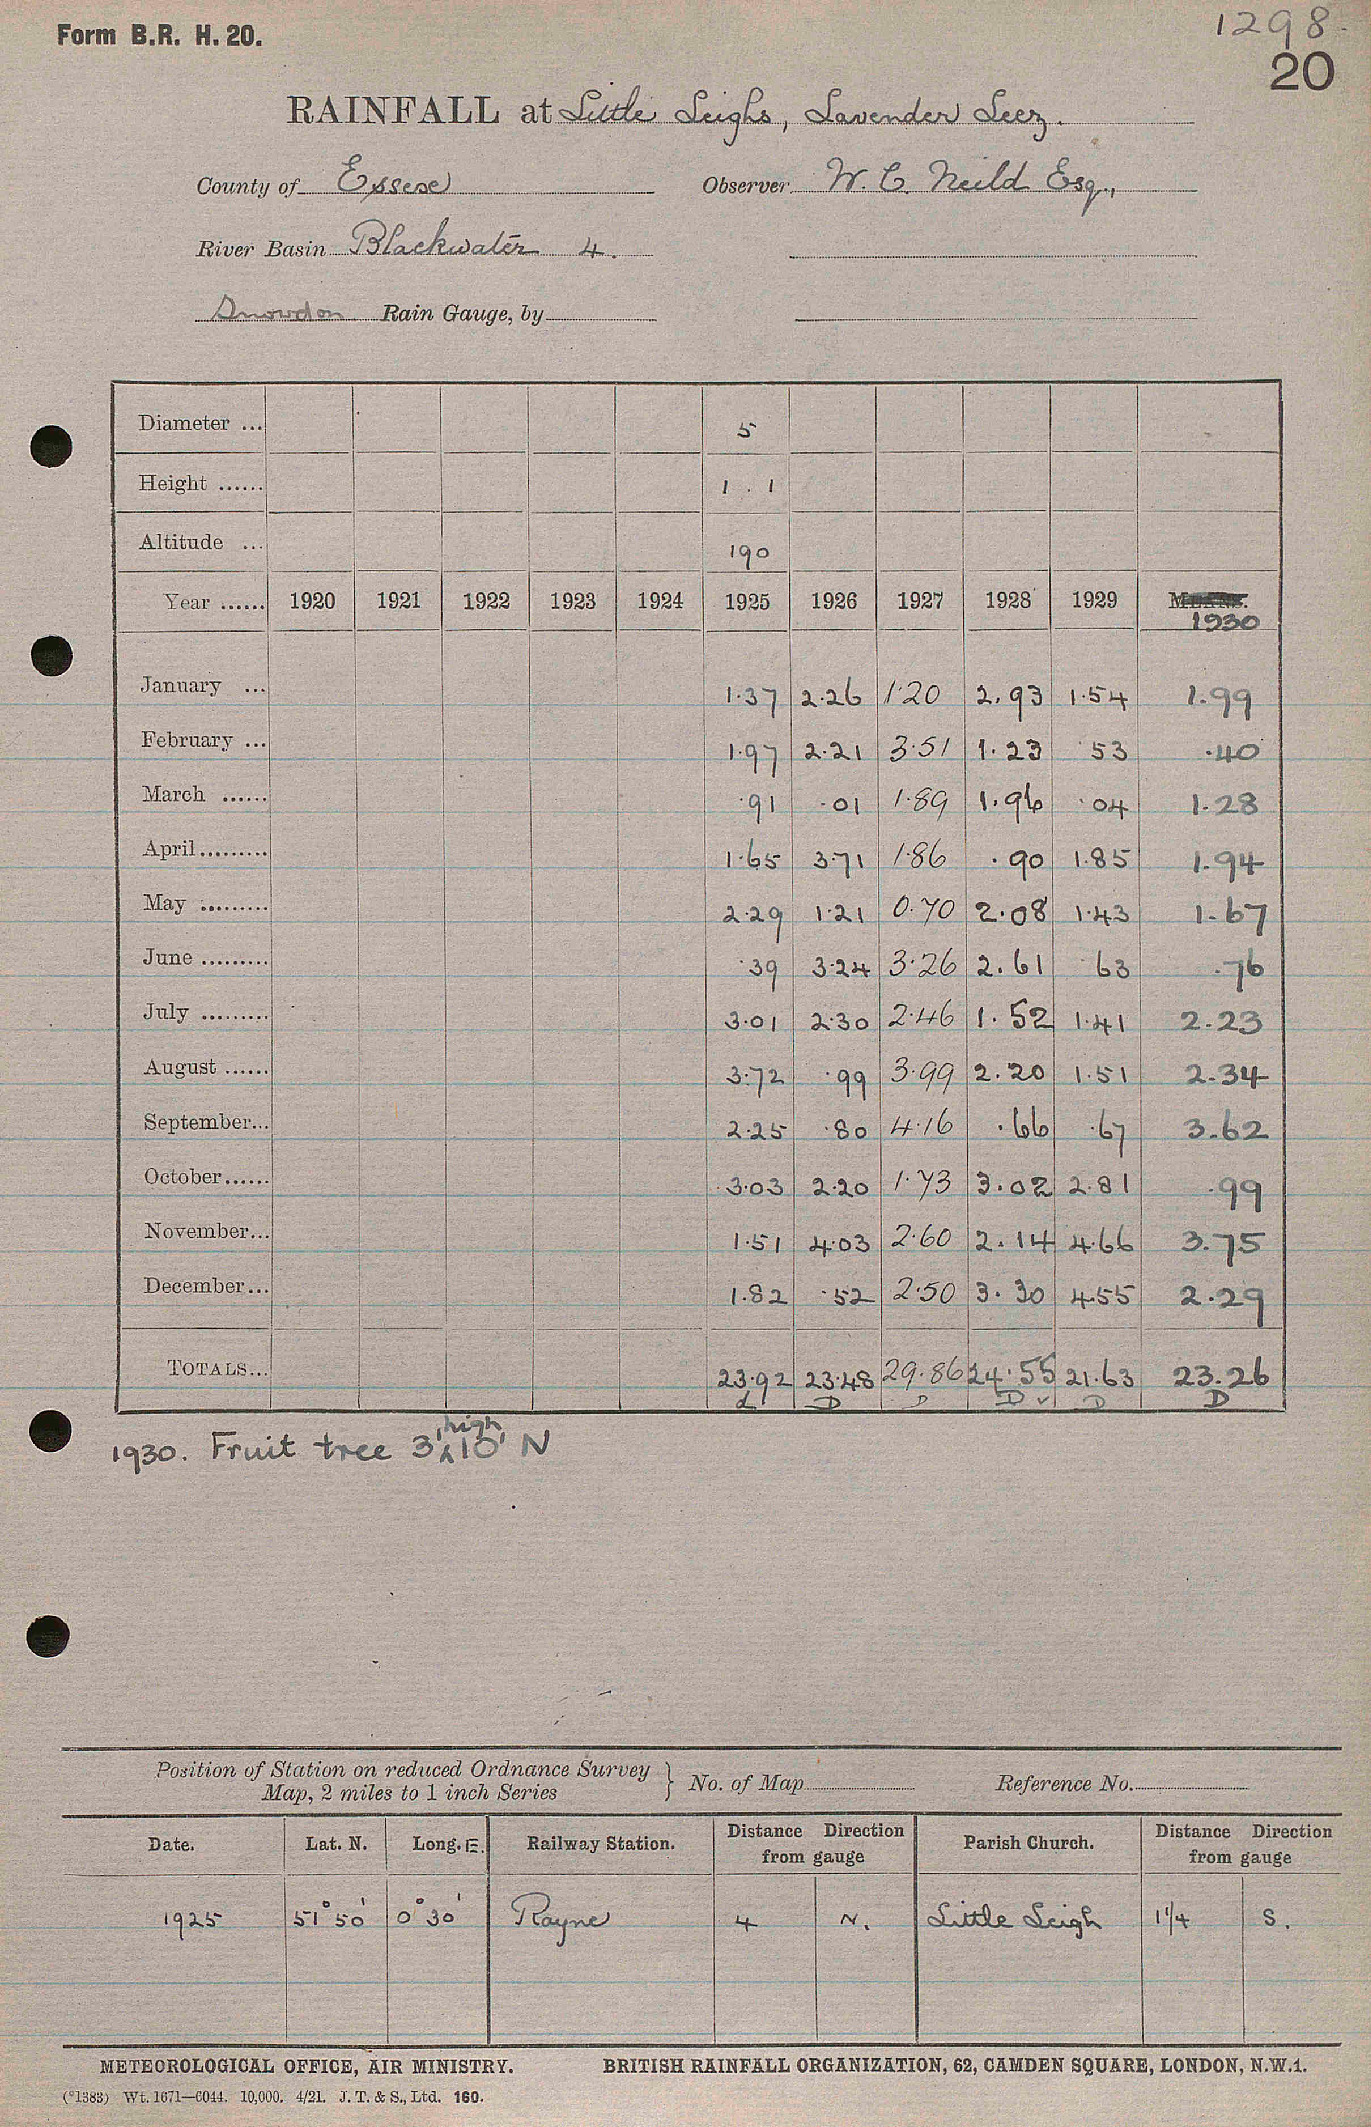 Form B.R. H. 20.
1298
20
RAINFALL at Little Leighs, Lavender Leez.
County of Essex Observer W. C. Neild Esq.,
River Basin Blackwater 4.
Snowdon Rain Gauge, by
Diameter ... 5
Height ...... 1 . 1
Altitude ... 190
Year ...... 1920 1921 1922 1923 1924 1925 1926 1927 1928 1929 MEANS.
1930
January ... 1.37 2.26 1.20 2.93 1.54 1.99
February ... 1.97 2.21 3.51 1.23 .53 .40
March ...... .91 .01 1.89 1.96 .04 1.28
April ......... 1.65 3.71 1.86 .90 1.85 1.94
May ......... 2.29 1.21 0.70 2.08 1.43 1.67
June ......... .39 3.24 3.26 2.61 .63 .76
July ......... 3.01 2.30 2.46 1.52 1.41 2.23
August ...... 3.72 .99 3.99 2.20 1.51 2.34
September... 2.25 .80 4.16 .66 .67 3.62
October...... 3.03 2.20 1.73 3.02 2.81 .99
November... 1.51 4.03 2.60 2.14 4.66 3.75
December... 1.82 .52 2.50 3.30 4.55 2.29
TOTALS... 23.92 23.48 29.86 24.55 21.63 23.26
L D D D ✓ D D
high
1930. Fruit tree 3' ʌ 10' N
Position of Station on reduced Ordnance Survey
Map, 2 miles to 1 inch Series } No. of Map Reference No.
Date. Lat. N. Long. E. Railway Station. Distance Direction from gauge Parish Church. Distance Direction from gauge
1925 51° 50' 0° 30' Rayne 4 N. Little Leigh 1¼ S.
METEOROLOGICAL OFFICE, AIR MINISTRY. BRITISH RAINFALL ORGANIZATION, 62, CAMDEN SQUARE, LONDON, N.W.1.
(*1383) Wt. 1671—6044. 10,000. 4/21. J. T. & S., Ltd. 160.